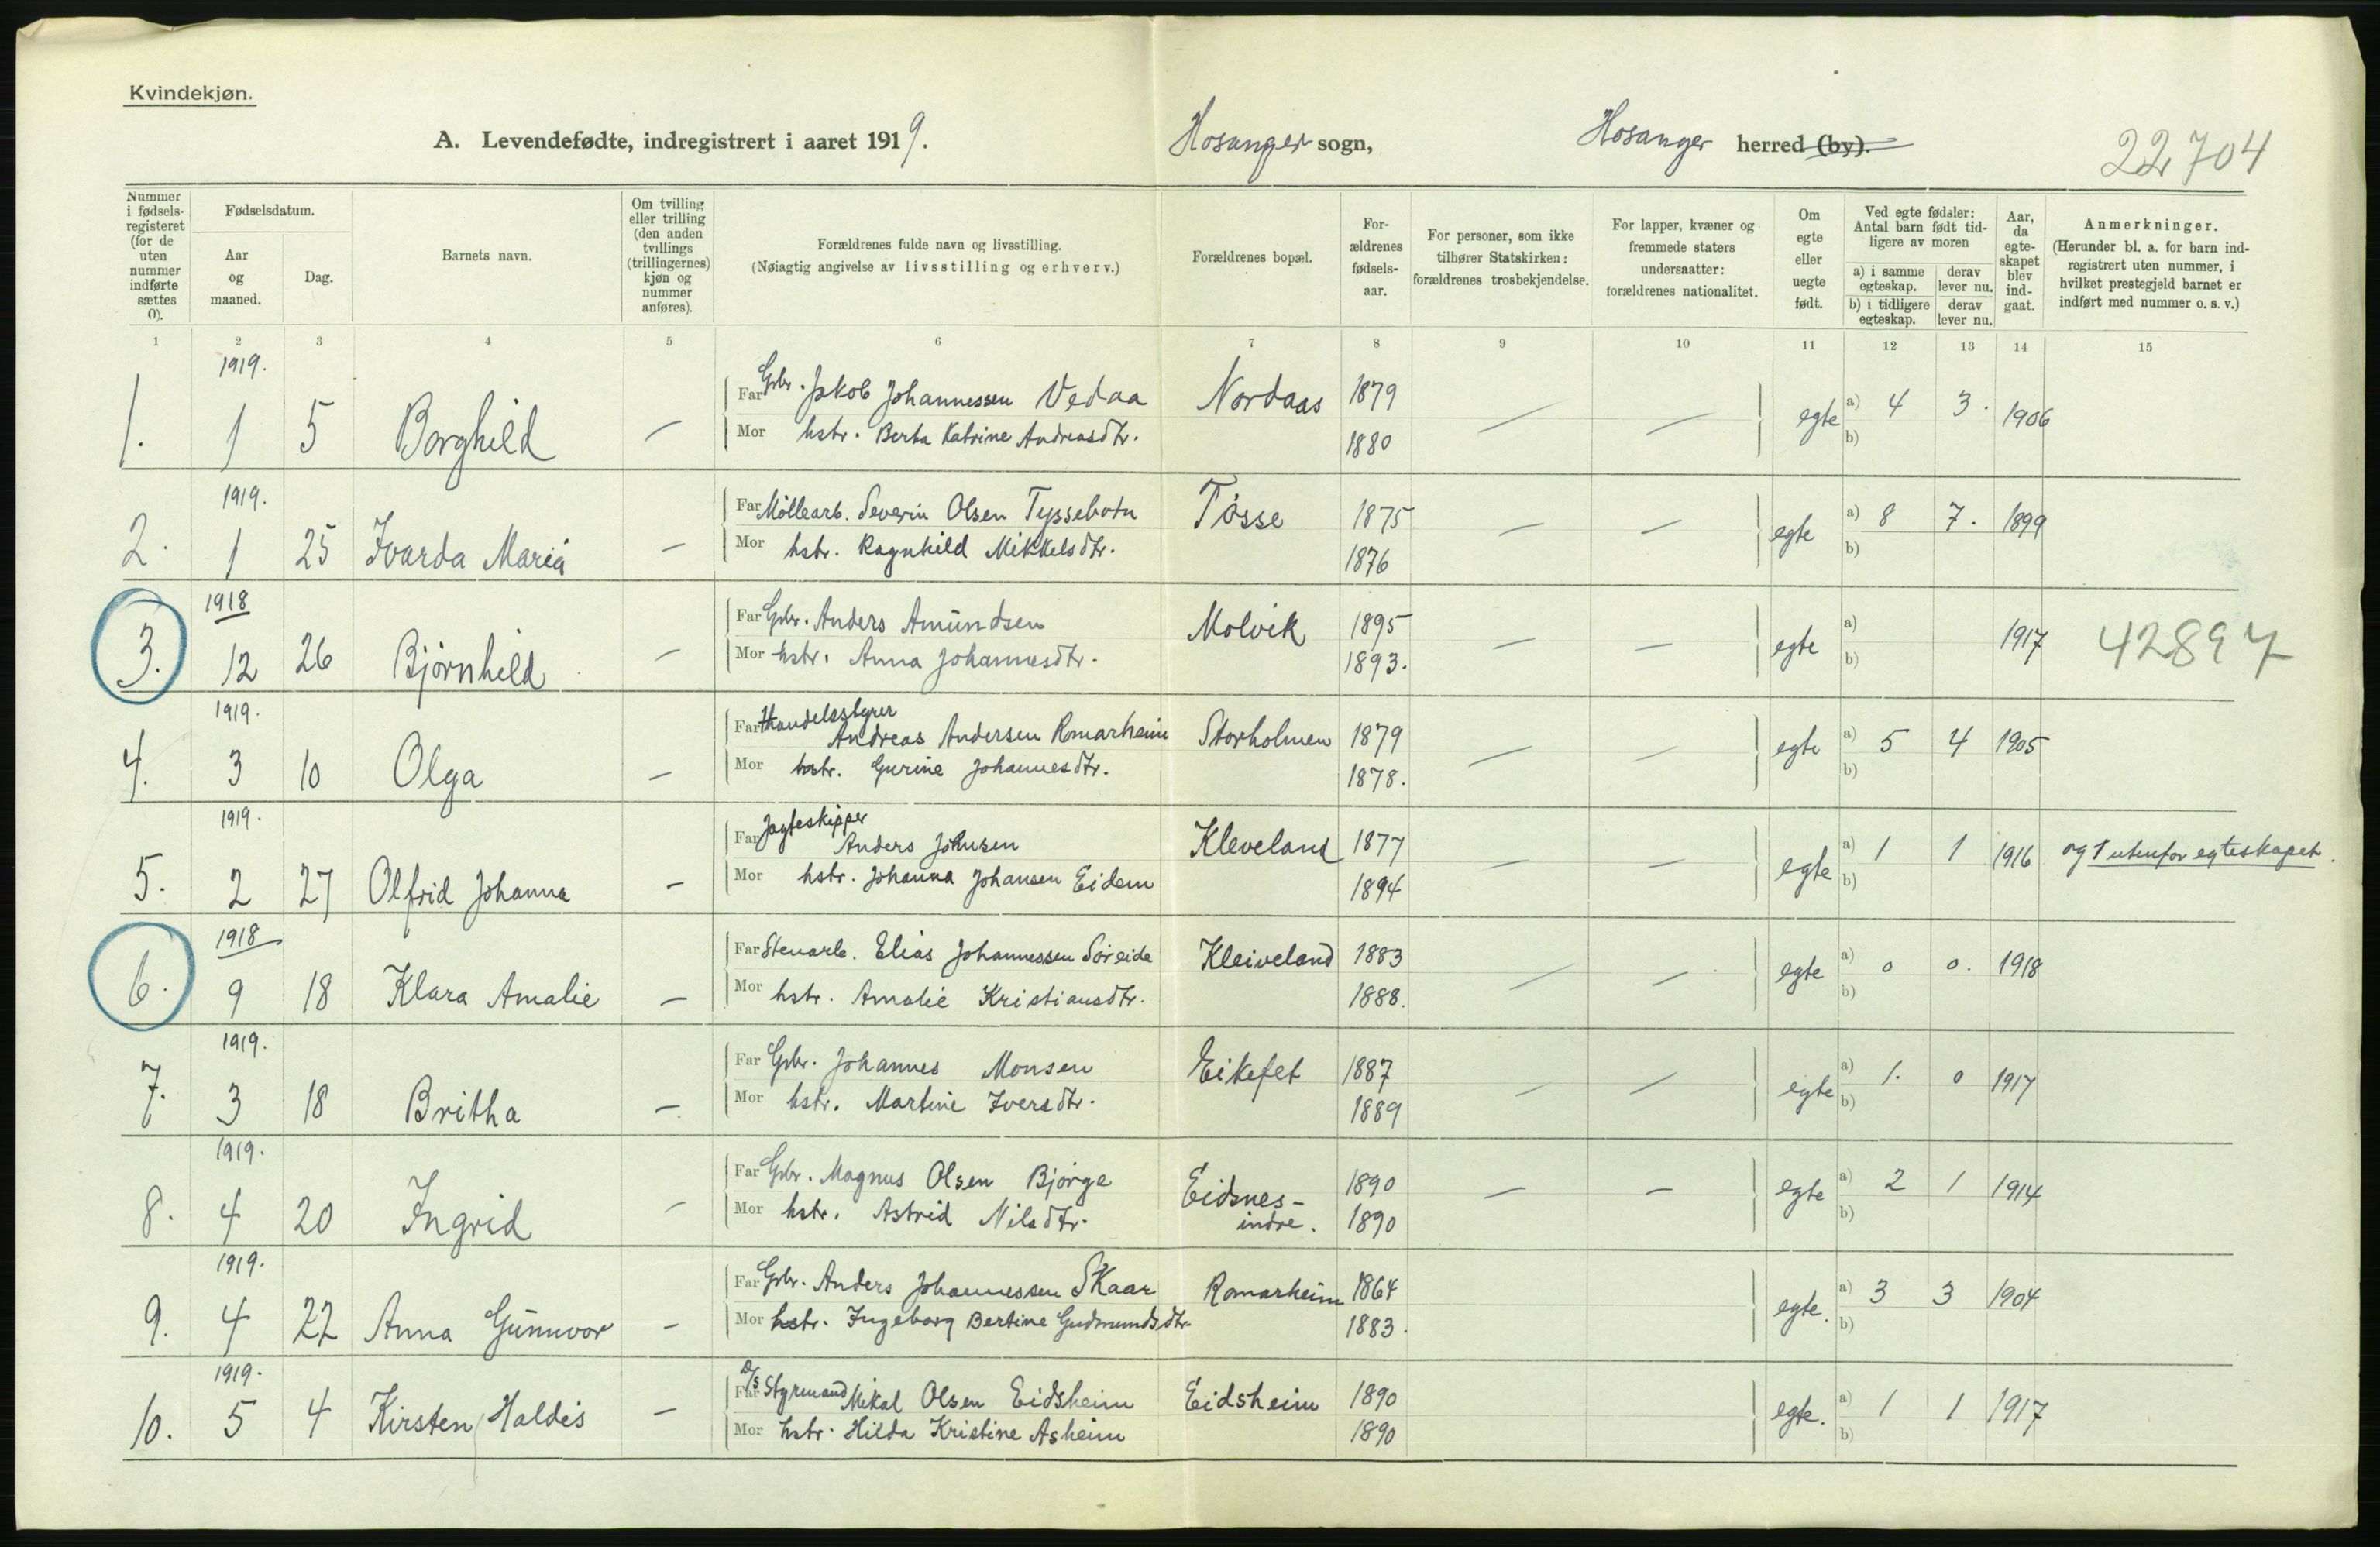 Kvindekjøn.
A. Levendefødte, indregistrert i aaret 1919. Hosanger sogn, Hosanger herred (by).
22704
Nummer i fødselsregisteret (for de uten nummer indførte sættes 0).
Fødselsdatum.
Aar og maaned.
Dag.
Barnets navn.
Om tvilling eller trilling (den anden tvillings (trillingernes) kjøn og nummer anføres).
Forældrenes fulde navn og livsstilling.
(Nøiagtig angivelse av livsstilling og erhverv.)
Forældrenes bopæl.
Forældrenes fødselsaar.
For personer, som ikke tilhører Statskirken: forældrenes trosbekjendelse.
For lapper, kvæner og fremmede staters undersaatter: forældrenes nationalitet.
Om egte eller uegte født.
Ved egte fødsler: Antal barn født tidligere av moren
a) i samme egteskap. derav lever nu.
b) i tidligere egteskap. derav lever nu.
Aar, da egteskapet blev indgaat.
Anmerkninger.
(Herunder bl. a. for barn indregistrert uten nummer, i hvilket prestegjeld barnet er indført med nummer o. s. v.)
1 2 3 4 5 6 7 8 9 10 11 12 13 14 15
1919.
1. 1 5 Borghild — Far Gbr. Jakob Johannessen Vedaa Nordaas 1879 — — egte a) 4 3. 1906
Mor hstr. Berta Katrine Andreasdtr. 1880 b)
1919.
2. 1 25 Ivarda Maria — Far Møllearb. Severin Olsen Tyssebotn Tøsse 1875 — — egte a) 8 7. 1899
Mor hstr. Ragnhild Mikkelsdtr. 1876 b)
1918
3. 12 26 Bjørnhild — Far Gbr. Anders Amundsen Molvik 1895 — — egte a) 1917 42897
Mor hstr. Anna Johannesdtr. 1893. b)
1919.
4. 3 10 Olga — Far Handelsstyrer Andreas Andersen Romarheim Storholmen 1879 — — egte a) 5 4 1905
Mor hstr. Gurine Johannesdtr. 1878. b)
1919.
5. 2 27 Olfrid Johanna — Far Jagteskipper Anders Johnsen Kleveland 1877 — — egte a) 1 1 1916 og 1 utenfor egteskapet.
Mor hstr. Johanna Johansen Eidem 1894 b)
1918
6. 9 18 Klara Amalie — Far Stenarb. Elias Johannessen Søreide Kleiveland 1883 — — egte a) 0 0. 1918
Mor hstr. Amalie Kristiansdtr. 1888. b)
1919.
7. 3 18 Britha — Far Gbr. Johannes Monsen Eikefet 1887 — — egte a) 1. 0 1917
Mor hstr. Martine Iversdtr. 1889 b)
1919.
8. 4 20 Ingrid — Far Gbr. Magnus Olsen Bjørge Eidsnes- 1890 — — egte a) 2 1 1914
Mor hstr. Astrid Nilsdtr. indre. 1890 b)
1919.
9. 4 22 Anna Gunnvor — Far Gbr. Anders Johannessen Skaar Romarheim 1864 egte. a) 3 3 1904
Mor hstr. Ingeborg Bertine Gudmundsdtr 1883. b)
1919.
10. 5 4 Kirsten Haldis — Far D/S Styrmand Mikal Olsen Eidsheim Eidsheim 1890 egte. a) 1 1 1917
Mor hstr. Hilda Kristine Asheim 1890 b)